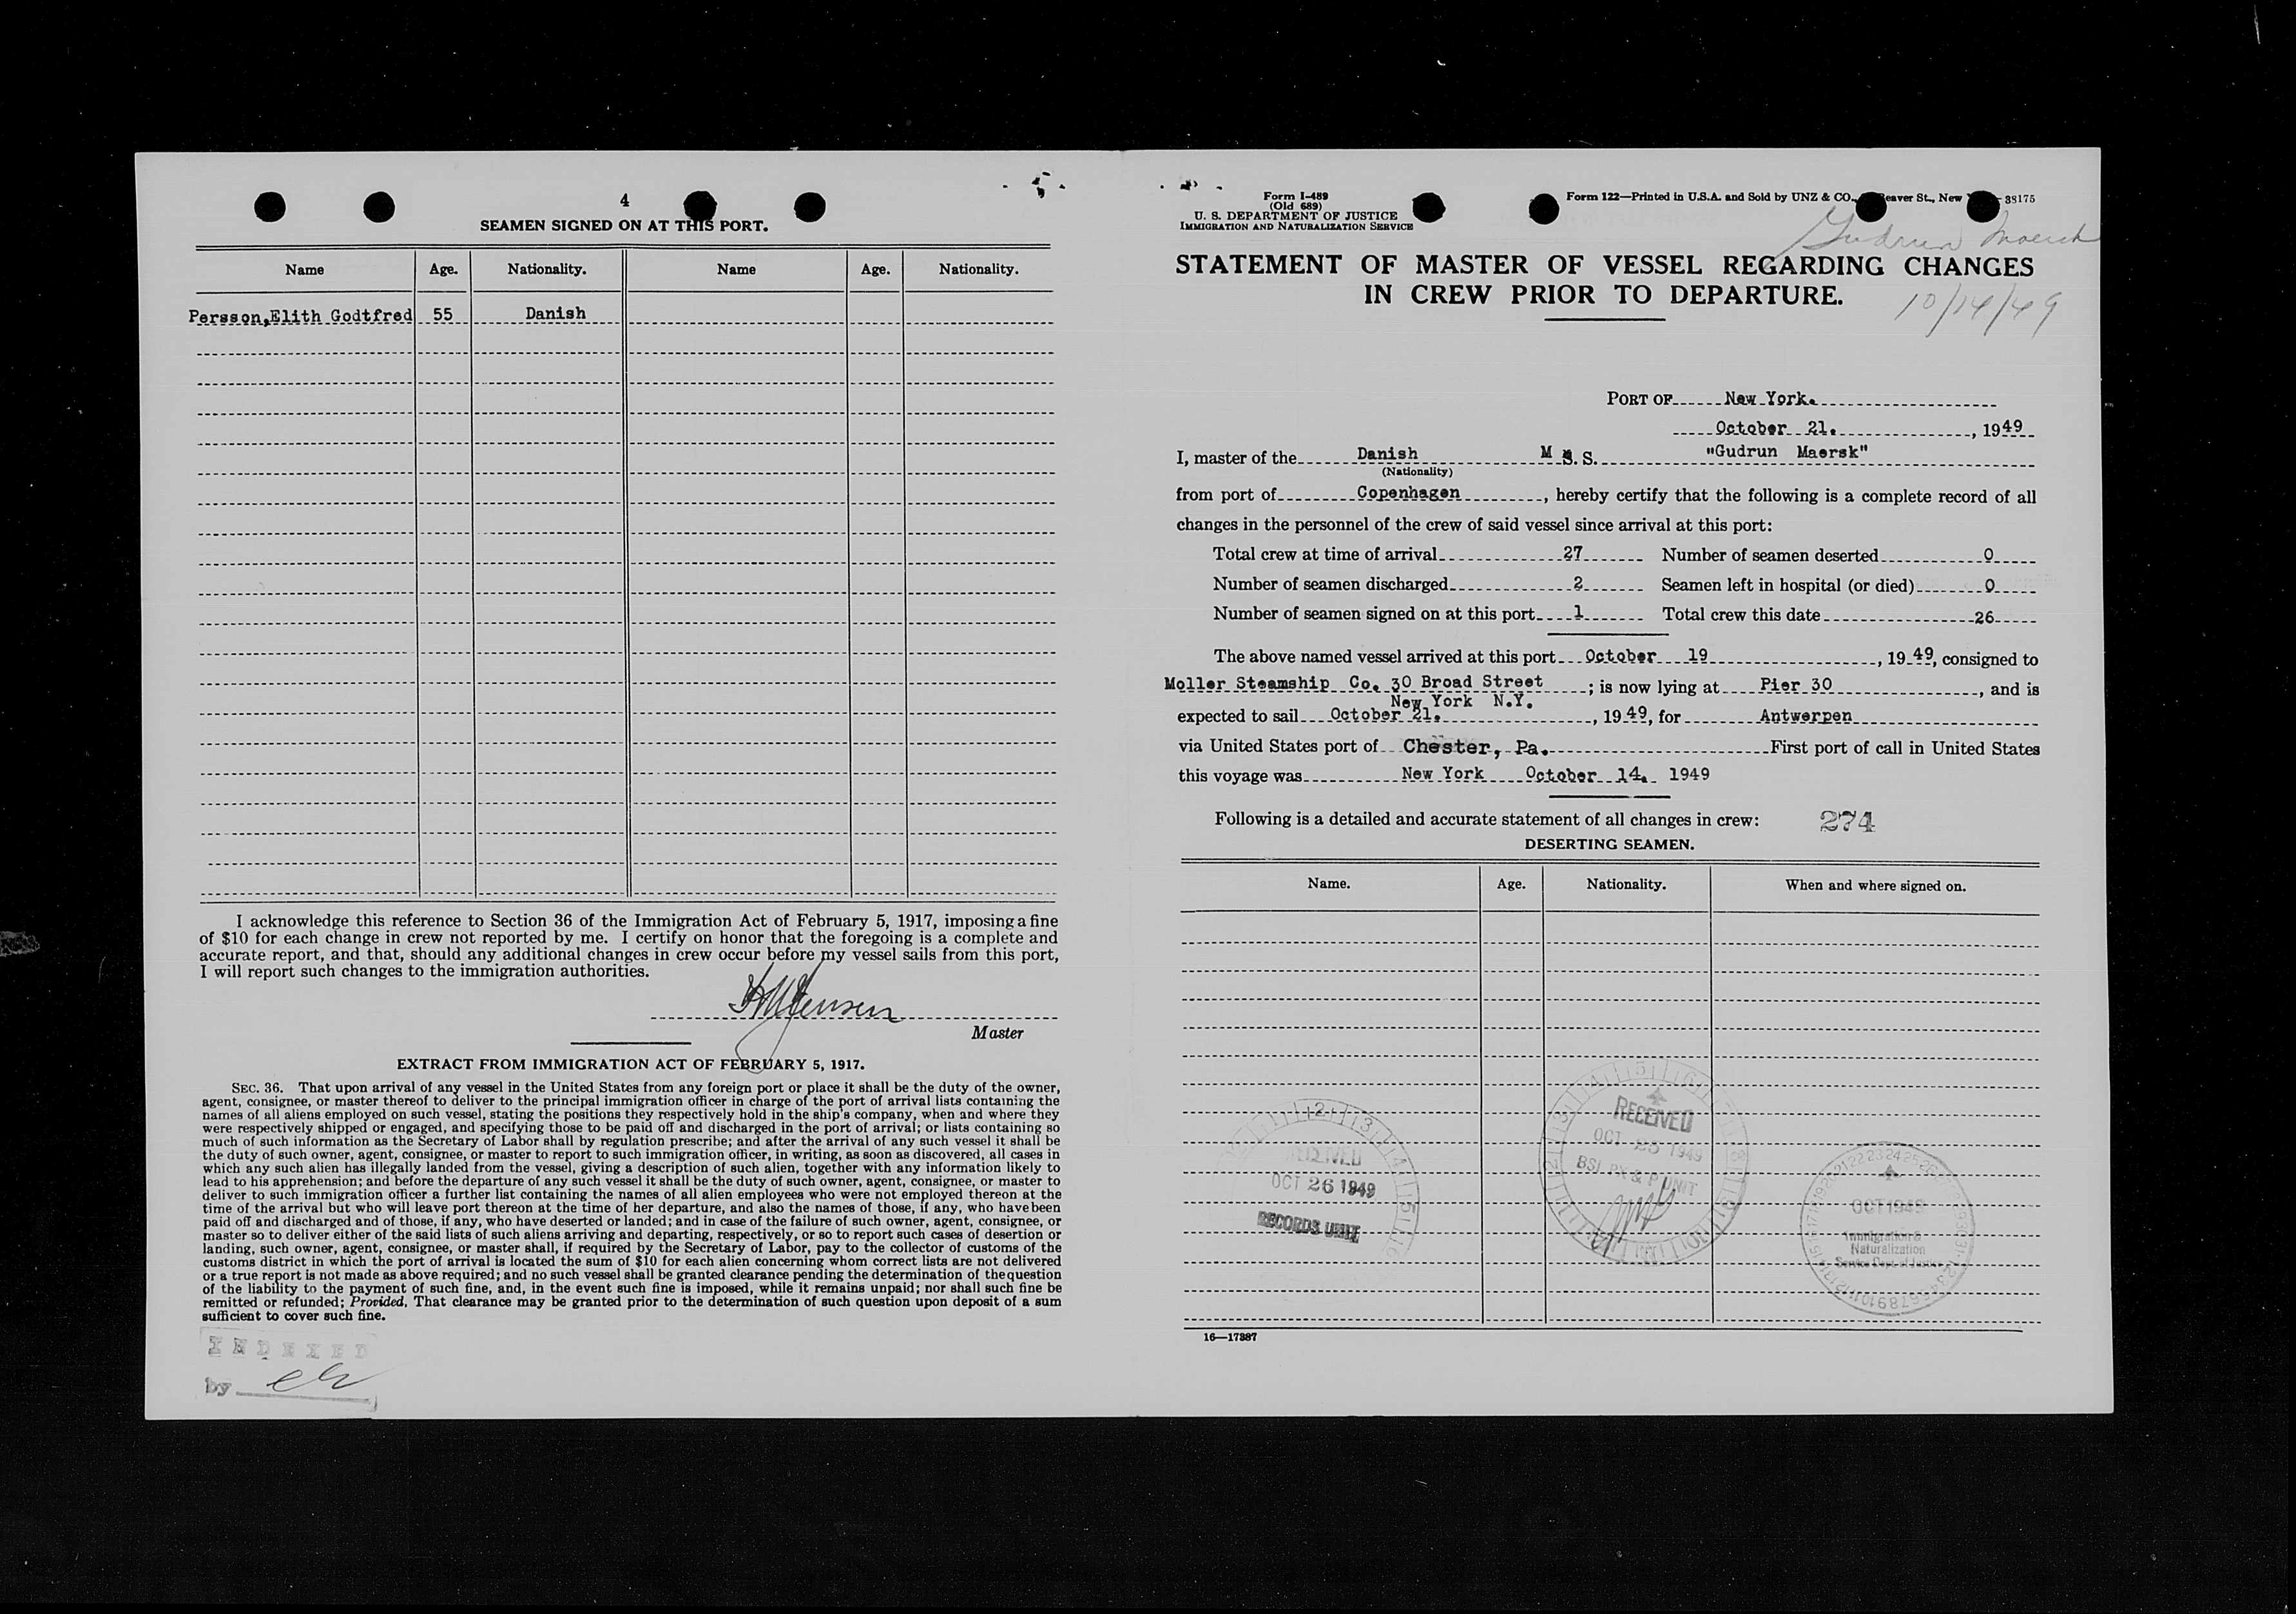 4
SEAMEN SIGNED ON AT THIS PORT.
Name Age. Nationality. Name Age. Nationality.
Persson,Elith Godtfred 55 Danish
I acknowledge this reference to Section 36 of the Immigration Act of February 5, 1917, imposing a fine
of $10 for each change in crew not reported by me. I certify on honor that the foregoing is a complete and
accurate report, and that, should any additional changes in crew occur before my vessel sails from this port,
I will report such changes to the immigration authorities.
Master
EXTRACT FROM IMMIGRATION ACT OF FEBRUARY 5, 1917.
SEC. 36. That upon arrival of any vessel in the United States from any foreign port or place it shall be the duty of the owner,
agent, consignee, or master thereof to deliver to the principal immigration officer in charge of the port of arrival lists containing the
names of all aliens employed on such vessel, stating the positions they respectively hold in the ship's company, when and where they
were respectively shipped or engaged, and specifying those to be paid off and discharged in the port of arrival; or lists containing so
much of such information as the Secretary of Labor shall by regulation prescribe; and after the arrival of any such vessel it shall be
the duty of such owner, agent, consignee, or master to report to such immigration officer, in writing, as soon as discovered, all cases in
which any such alien has illegally landed from the vessel, giving a description of such alien, together with any information likely to
lead to his apprehension; and before the departure of any such vessel it shall be the duty of such owner, agent, consignee, or master to
deliver to such immigration officer a further list containing the names of all alien employees who were not employed thereon at the
time of the arrival but who will leave port thereon at the time of her departure, and also the names of those, if any, who have been
paid off and discharged and of those, if any, who have deserted or landed; and in case of the failure of such owner, agent, consignee, or
master so to deliver either of the said lists of such aliens arriving and departing, respectively, or so to report such cases of desertion or
landing, such owner, agent, consignee, or master shall, if required by the Secretary of Labor, pay to the collector of customs of the
customs district in which the port of arrival is located the sum of $10 for each alien concerning whom correct lists are not delivered
or a true report is not made as above required; and no such vessel shall be granted clearance pending the determination of the question
of the liability to the payment of such fine, and, in the event such fine is imposed, while it remains unpaid; nor shall such fine be
remitted or refunded; Provided, That clearance may be granted prior to the determination of such question upon deposit of a sum
sufficient to cover such fine.
INDEXED
by
Form I-489
(Old 689)
U. S. DEPARTMENT OF JUSTICE
IMMIGRATION AND NATURALIZATION SERVICE
Form 122—Printed in U.S.A. and Sold by UNZ & CO., Beaver St., New 38175
Gudrun Maersk
STATEMENT OF MASTER OF VESSEL REGARDING CHANGES
IN CREW PRIOR TO DEPARTURE.
10/14/49
PORT OF New York.
October 21. , 1949
I, master of the Danish M S. S. "Gudrun Maersk"
(Nationality)
from port of Copenhagen , hereby certify that the following is a complete record of all
changes in the personnel of the crew of said vessel since arrival at this port:
Total crew at time of arrival 27 Number of seamen deserted 0
Number of seamen discharged 2 Seamen left in hospital (or died) 0
Number of seamen signed on at this port 1 Total crew this date 26
The above named vessel arrived at this port October 19 , 1949, consigned to
Moller Steamship Co. 30 Broad Street ; is now lying at Pier 30 , and is
New York N.Y.
expected to sail October 21. , 1949, for Antwerpen
via United States port of Chester, Pa. First port of call in United States
this voyage was New York October 14. 1949
Following is a detailed and accurate statement of all changes in crew: 274
DESERTING SEAMEN.
Name. Age. Nationality. When and where signed on.
RECEIVED
OCT 26 1949
RECORDS UNIT
RECEIVED
OCT 1949
BSI PX & P UNIT
OCT 1949
Immigration &
Naturalization
16—17887